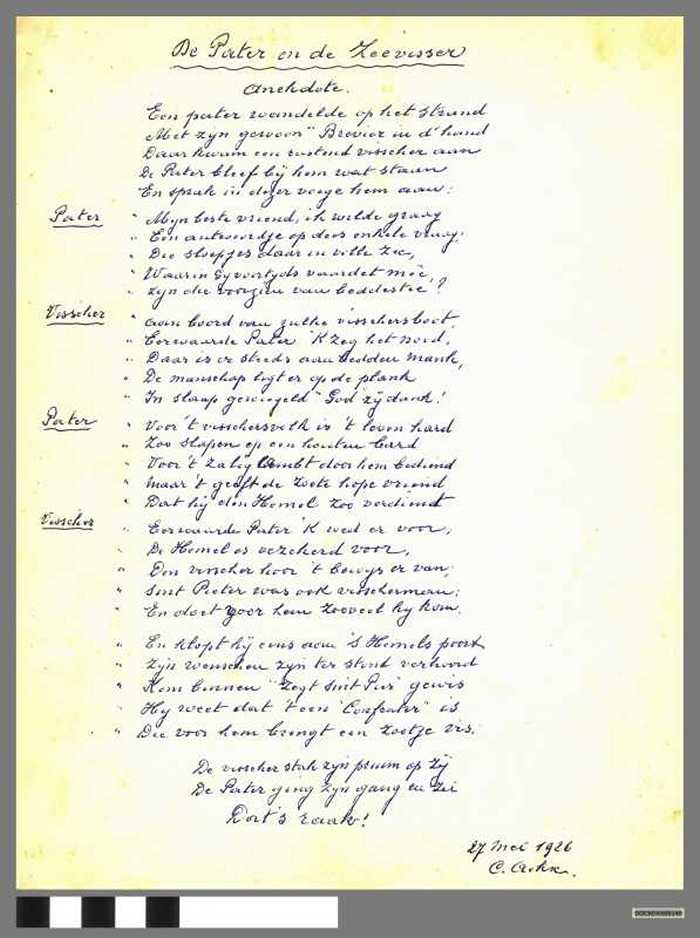 De Pater en de Zeevisser
Anekdote.
Een pater wandelde op het strand
Met zyn gewoon " Brevier in d' hand
Daar kwam een rustend visscher aan
De Pater bleef bij hem wat staan
En sprak in dezer voege hem aan:
Pater " Myn beste vriend, ik wilde graag
" Een antwoordje op dees enkele vraag;
" Die sloepjes daar in volle Zee,
" Waarin gy voortyds vaardet mêe,
" zyn die voorzien van beddestee'?
Visscher " Aan boord van zulke visschersboot,
" Eerwaarde Pater 'K Zeg het nood,
" Daar is er steeds aan bedden mank,
" De manschap ligt er op de plank
" In slaap gewiegeld " God zÿ dank!
Pater " Voor 't visschersvolk is 't leven hard
" Zoo slapen op een houten bard
" Voor 't Zalig ambt door hem bediend
" Maar 't geeft de Zoete hope vriend
" Dat hij den Hemel Zoo verdient
Visscher " Eerwaarde Pater 'K wed er voor,
" De Hemel is verzekerd voor,
" Den visscher hoor 't bewys er van;
" Sint Pieter was ook visscherman;
" En doet voor hem Zooveel hy kan.
" En klopt hÿ eens aan 's Hemels poort
" Zÿn wenschen zÿn ter stond verhoord
" Kom binnen " Zegt Sint Pier gewis
" Hy weet dat 't een "Confrater" is
" Die voor hem brengt een Zootje vis.
De visscher stak zÿn pruim op Zÿ
De Pater ging zÿn gang en Zei
Dat's raak!
27 Mei 1926
C.